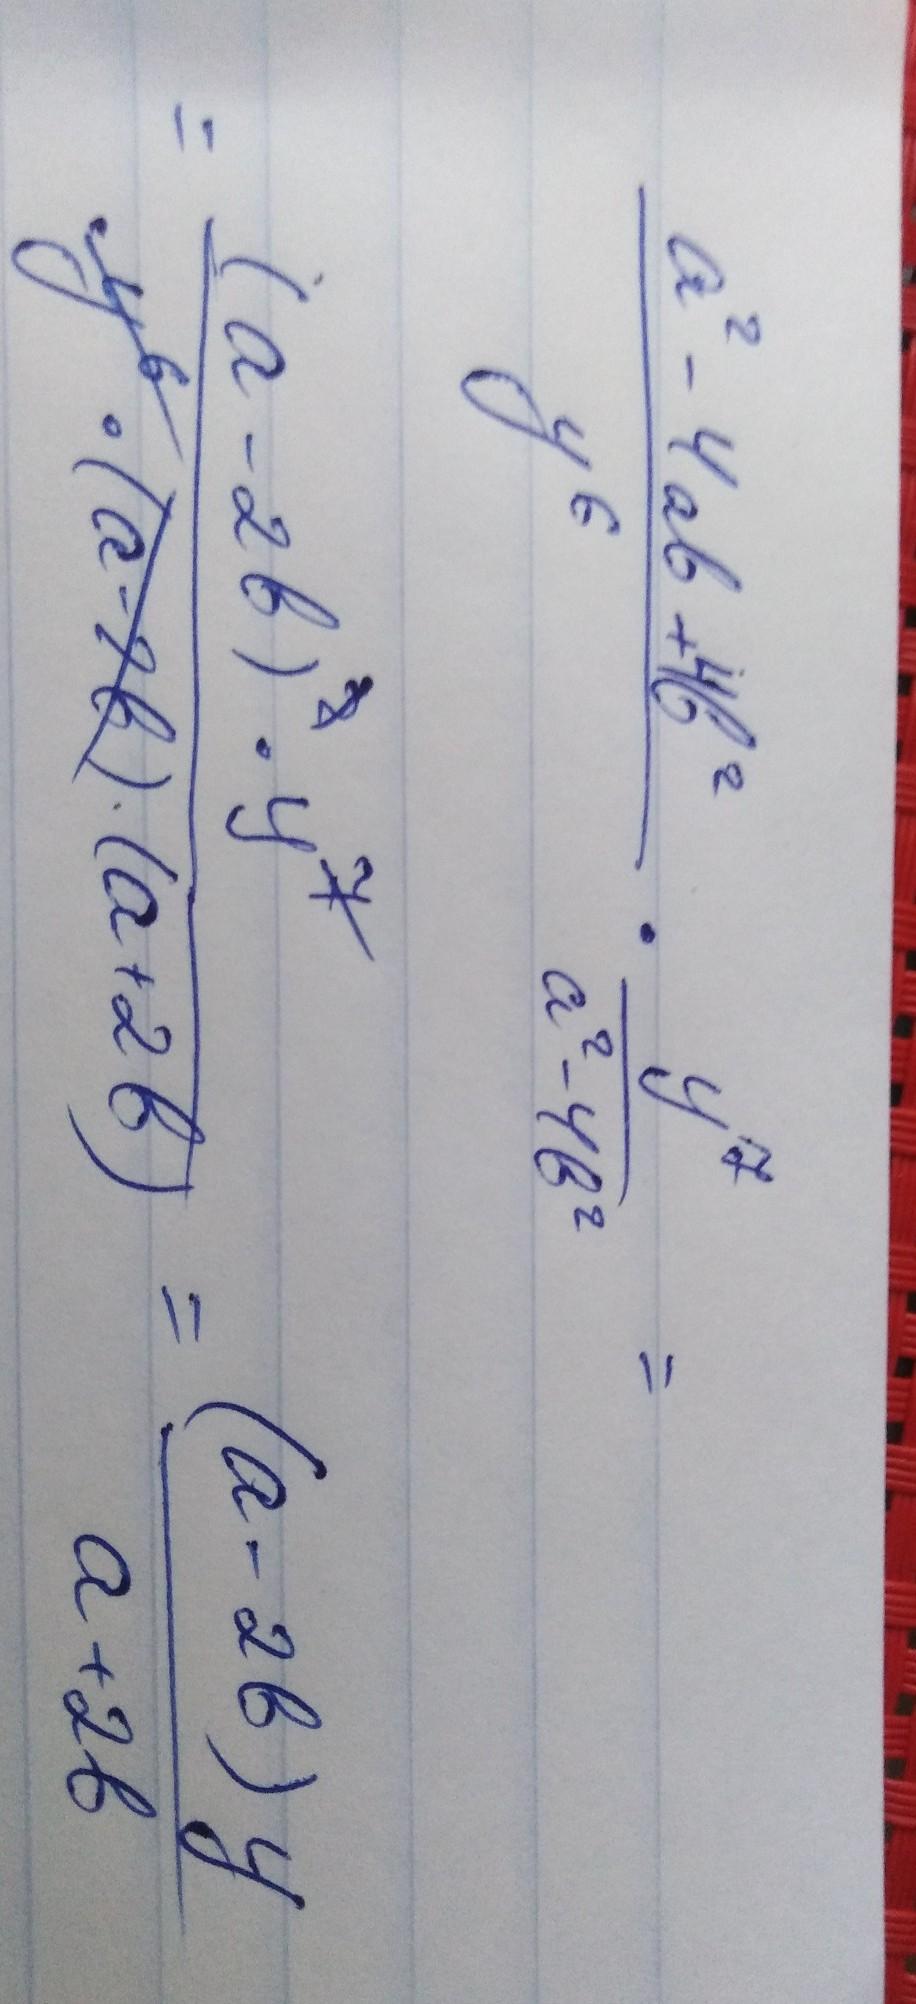 a² - 4ab + 4b² / y⁶ · y⁷ / a² - 4b² =
= (a - 2b)² · y⁷ / y⁶ · (a - 2b) · (a + 2b) = (a - 2b) y / a + 2b